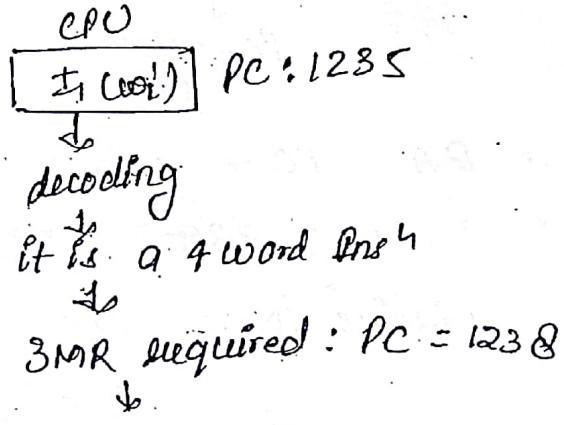 CPU
I1 (woi) PC: 1235
↓
decoding
↓
it is a 4 word Insn
↓
3MR required: PC = 1238
↓